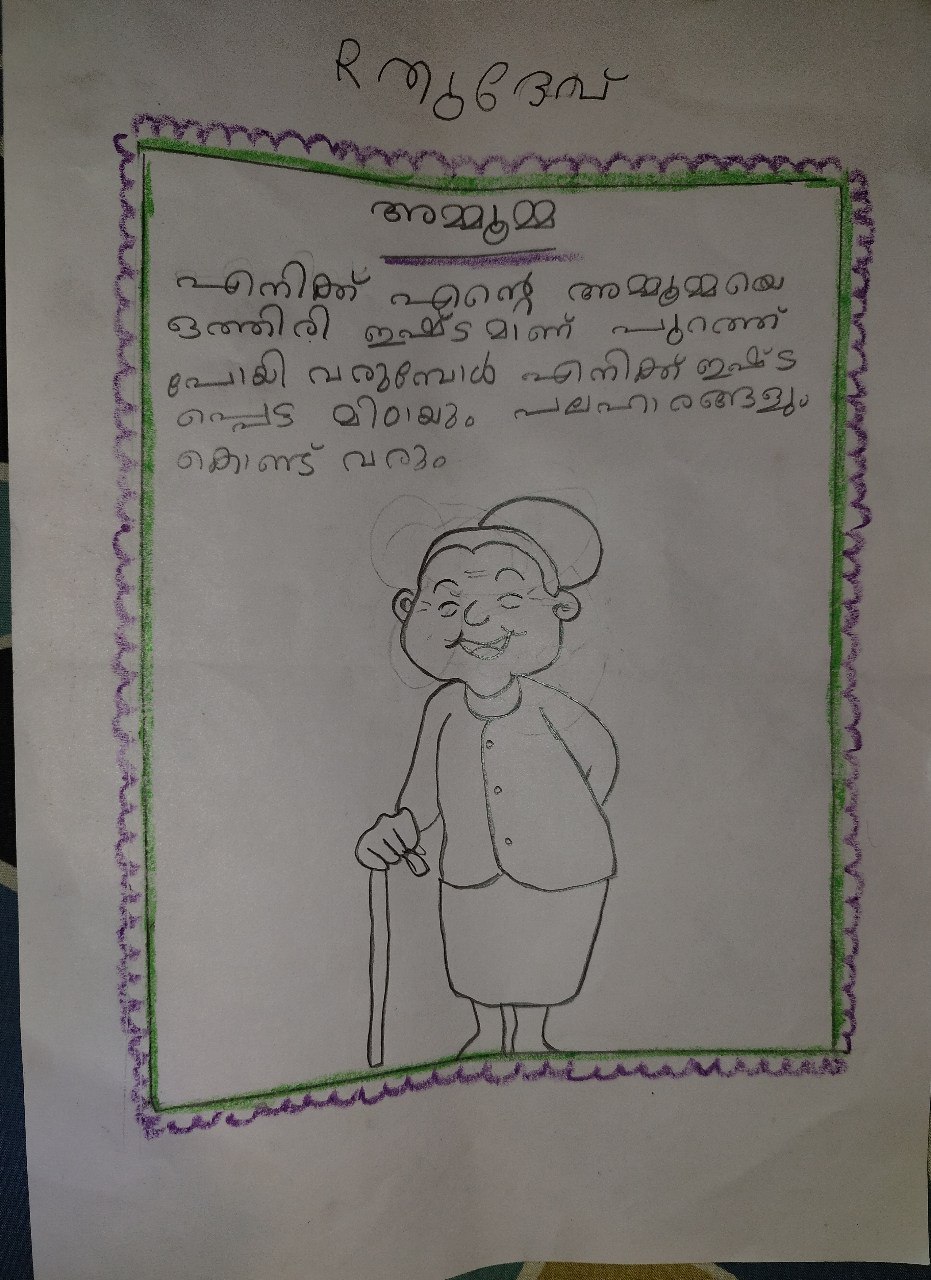 R തുദേവ്
അമ്മൂമ്മ
എനിക്ക് എന്റെ അമ്മൂമ്മയെ
ഒത്തിരി ഇഷ്ടമാണ് പുറത്ത്
പോയി വരുമ്പോൾ എനിക്ക് ഇഷ്ട
പ്പെട്ട മിഠായും പലഹാരങ്ങളും
കൊണ്ട് വരും